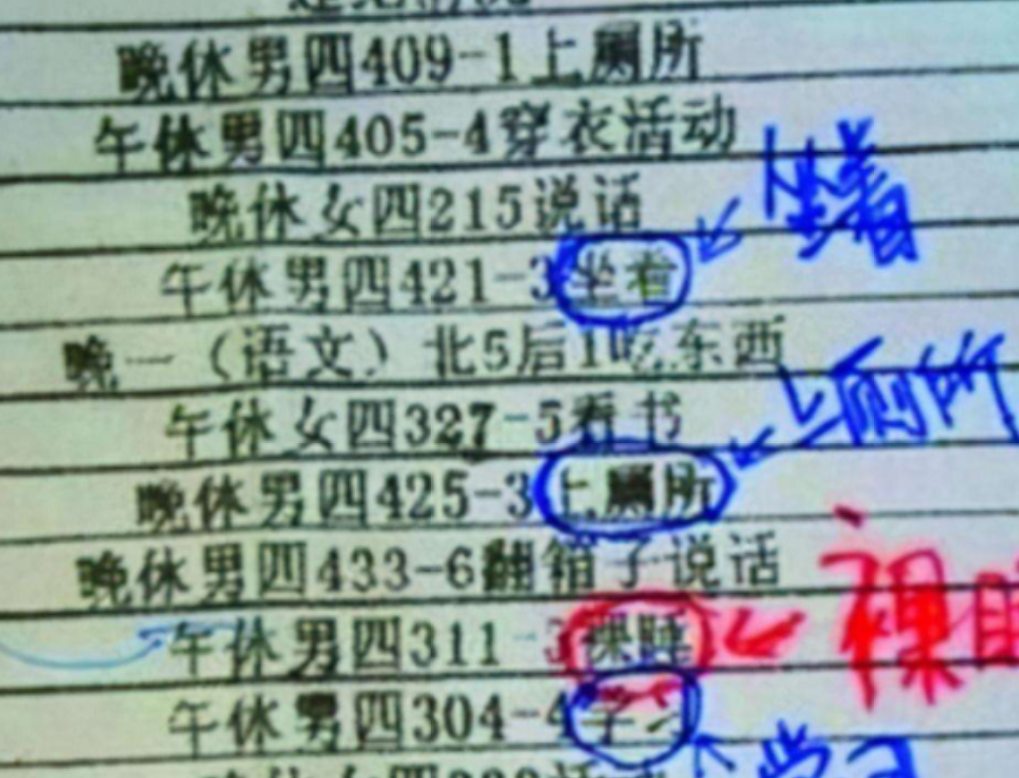 晚休男四409-1上厕所
午休男四405-4穿衣活动
晚休女四215说话
坐着
午休男四421-3坐着
晚一（语文）北5后1吃东西
午休女四327-5看书
上厕所
晚休男四425-3上厕所
晚休男四433-6翻箱子说话
裸睡
午休男四311-3裸睡
午休男四304-4学习
学习